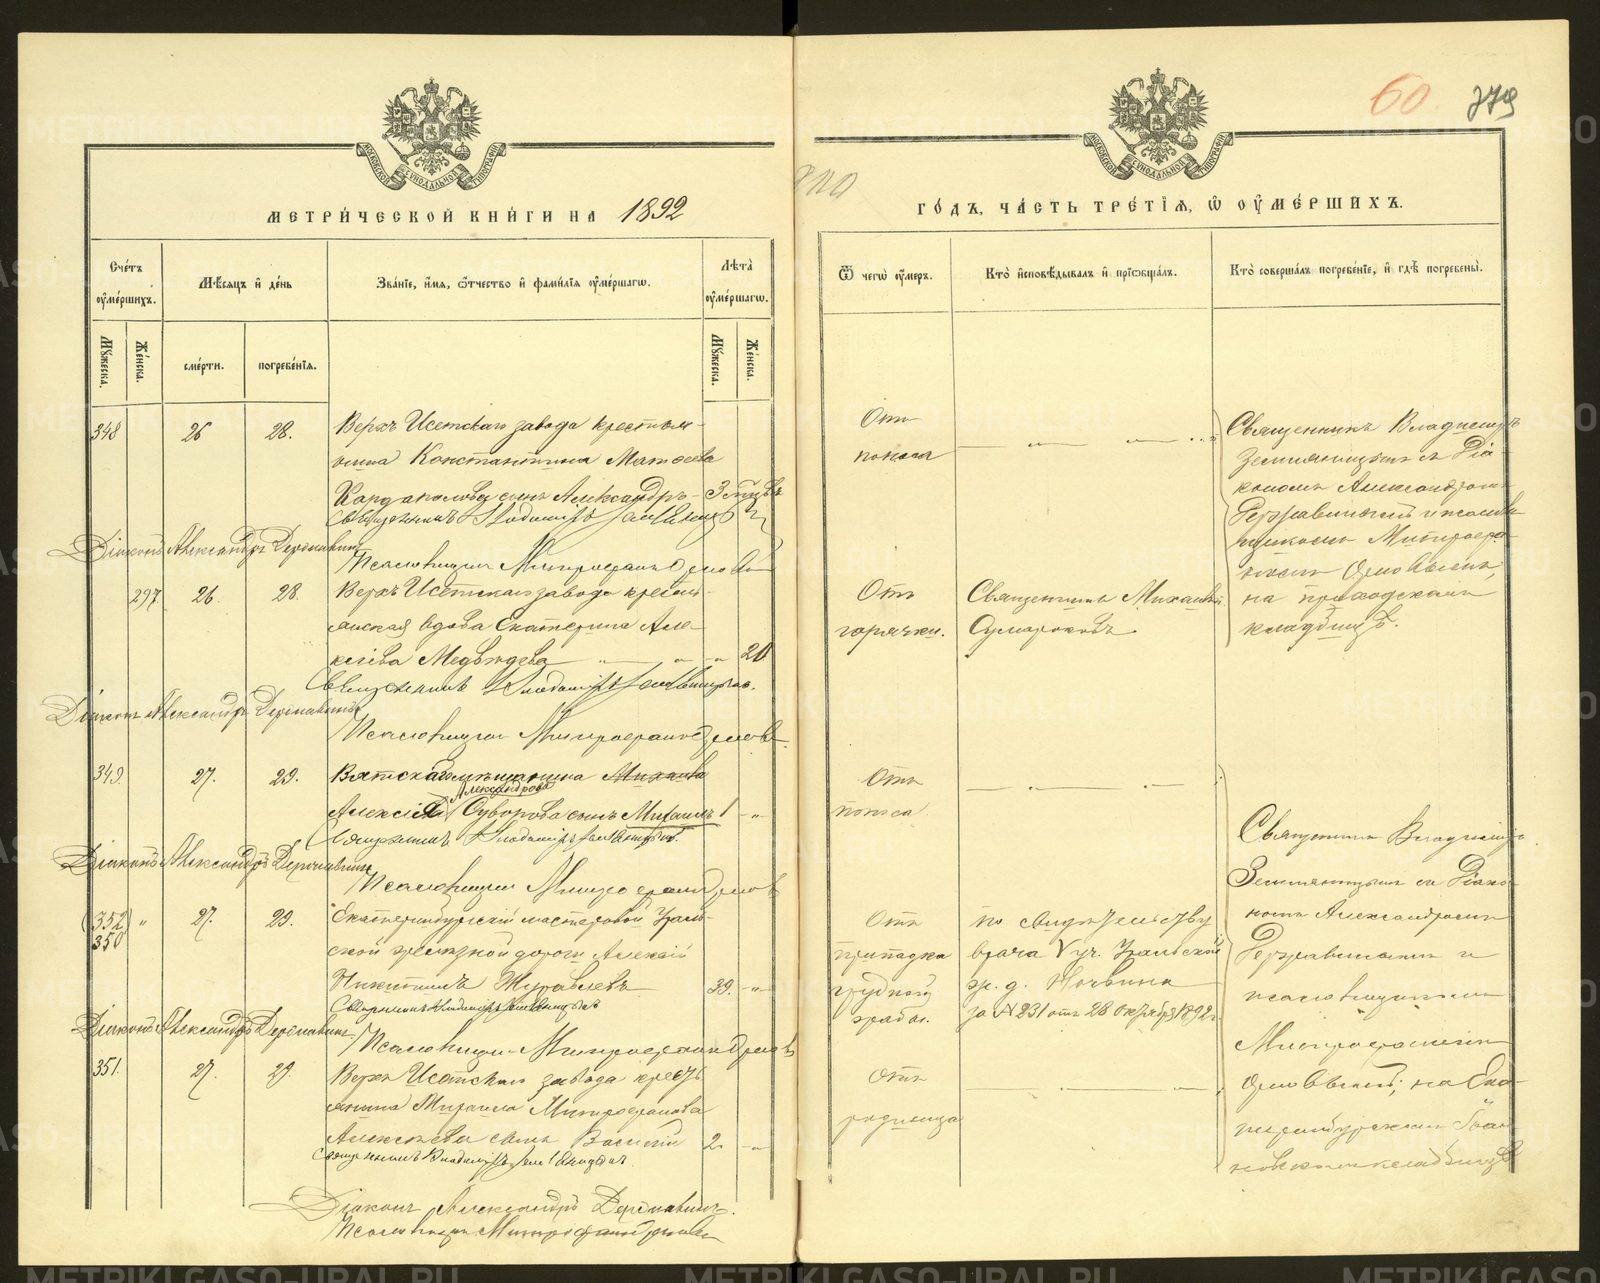 60 779
МОСКОВСКОЙ СѴНОДАЛЬНОЙ ТИПОГРАФІИ
МОСКОВСКОЙ СѴНОДАЛЬНОЙ ТИПОГРАФІИ
МЕТРИ́ЧЕСКОЙ КНИ́ГИ НА 1892
ГО́ДЪ, ЧА́СТЬ ТРЕ́ТІѦ, Ѡ ОУ҆МЕ́РШИХЪ.
Сче́тъ оу҆ме́ршихъ.
Мꙋ́жеска.
Же́нска.
Мѣ́сѧцъ и҆ де́нь
сме́рти.
погребе́нїѧ.
Зва́нїе, и҆́мѧ, ѻ҆́тчество и҆ фамі́лїѧ оу҆ме́ршагѡ.
Лѣ́та оу҆ме́ршагѡ.
Мꙋ́жеска.
Же́нска.
Ѿ чегѡ̀ оу҆́меръ.
Кто̀ и҆сповѣ́дывалъ и҆ прїѡбща́лъ.
Кто̀ соверша́лъ погребе́нїе, и҆ гдѣ̀ погребены̀.
348 26 28. Верхъ Исетскаго завода крестьян-
нина Константина Матѳеева
Кардаполова сынъ Александръ 3 мѣс.
Священникъ Владиміръ Земляницынъ
Діаконъ Александръ Державинъ
Псаломщикъ Митрофанъ Орловъ
Отъ
поноса
Священникъ Владиміръ
Земляницынъ съ Діа-
кономъ Александромъ
Державинымъ и псалом-
щикомъ Митрофа-
номъ Орловымъ,
на приходскомъ
кладбищѣ.
297 26 28 Верхъ Исетскаго завода кресть-
янская вдова Екатерина Але-
ксіева Медвѣдева 20
Священникъ Владиміръ Земляницынъ.
Діаконъ Александръ Державинъ
Псаломщикъ Митрофанъ Орловъ
Отъ
горячки.
Священникъ Михаилъ
Сумароковъ
349 27. 29. Вятскаго мѣщанина Михаила
Александрова
Алексія Суворова сынъ Михаилъ 1
Священникъ Владиміръ Земляницынъ.
Діаконъ Александръ Державинъ
Псаломщикъ Митрофанъ Орловъ
Отъ
поноса
Священникъ Владиміръ
Земляницынъ съ Діако-
номъ Александромъ
Державинымъ и
псаломщикомъ
Митрофаномъ
Орловымъ; на Ека-
теринбургскомъ Іоан-
новскомъ кладбищѣ
(352) 27. 29. Екатеринбургскій мастеровой Ураль-
350
ской желѣзной дороги Алексій
Никитинъ Журавлевъ 39.
Священникъ Владиміръ Земляницынъ
Діаконъ Александръ Державинъ
Псаломщикъ Митрофанъ Орловъ
Отъ
припадка
грудной
жабы.
по свидѣтельству
врача V уч. Уральской
ж. д.
за № 231 отъ 28 октября 1892 г.
351. 27. 29. Верхъ Исетскаго завода кресть
янина Михаила Митрофанова
Алексѣева сынъ Василій 2
Священникъ Владиміръ Земляницынъ
Діаконъ Александръ Державинъ.
Псаломщикъ Митрофанъ Орловъ
Отъ
родимца
METRIKI.GASO-URAL.RU